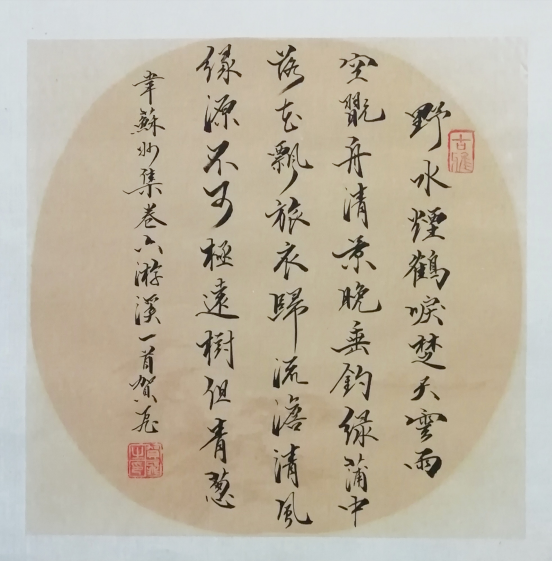 野水煙鶴唳楚天雲雨
空翫舟清景晚垂釣綠蒲中
落花飄旅衣歸流澹清風
緣源不可極遠樹但青蔥
韋蘇州集卷六游溪一首賀